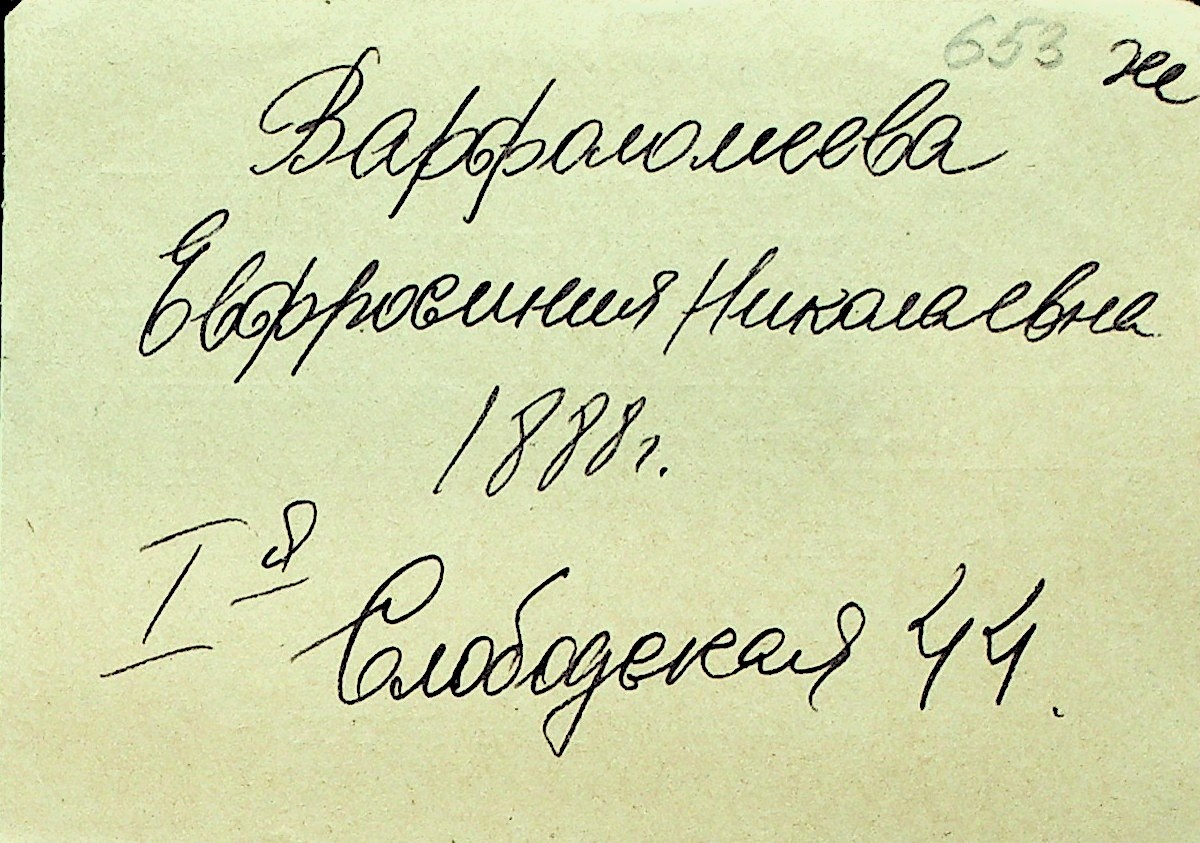 653 же
Варфоломеева
Евфросиния Николаевна
1888г.
I я Слободская 44.